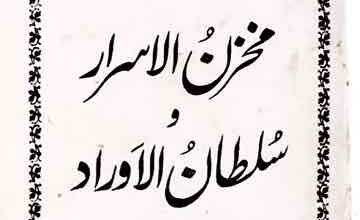 مخزنُ الاسرار
و
سُلطانُ الاَوراد